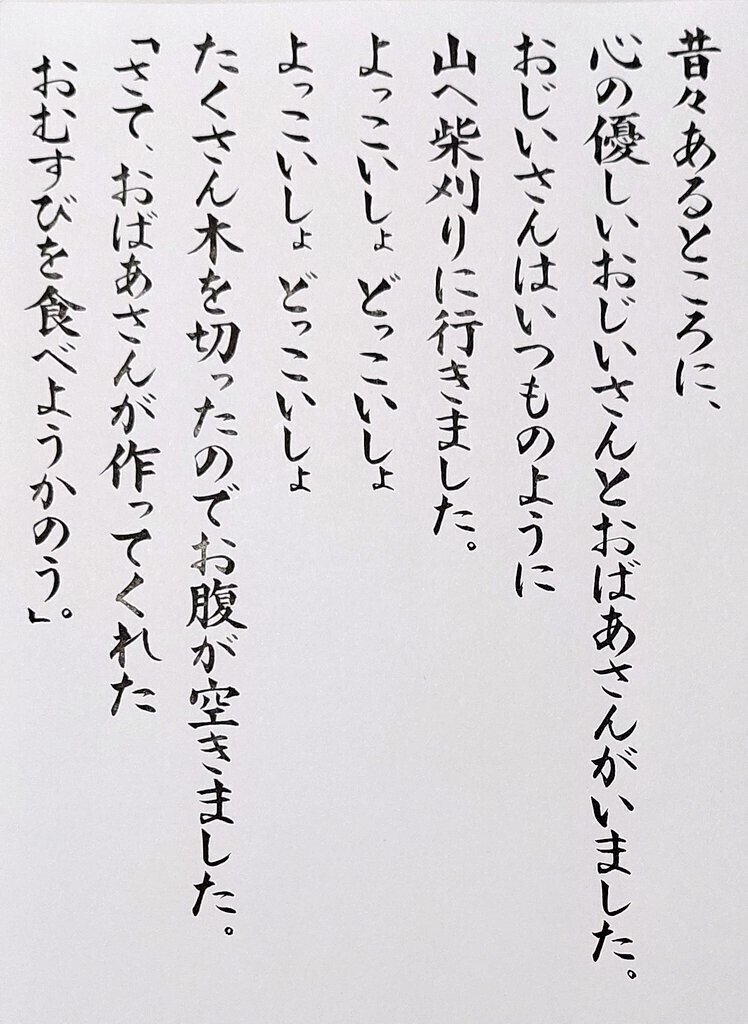 昔々あるところに、
心の優しいおじいさんとおばあさんがいました。
おじいさんはいつものように
山へ柴刈りに行きました。
よっこいしょ どっこいしょ
よっこいしょ どっこいしょ
たくさん木を切ったのでお腹が空きました。
「さて、おばあさんが作ってくれた
おむすびを食べようかのう」。